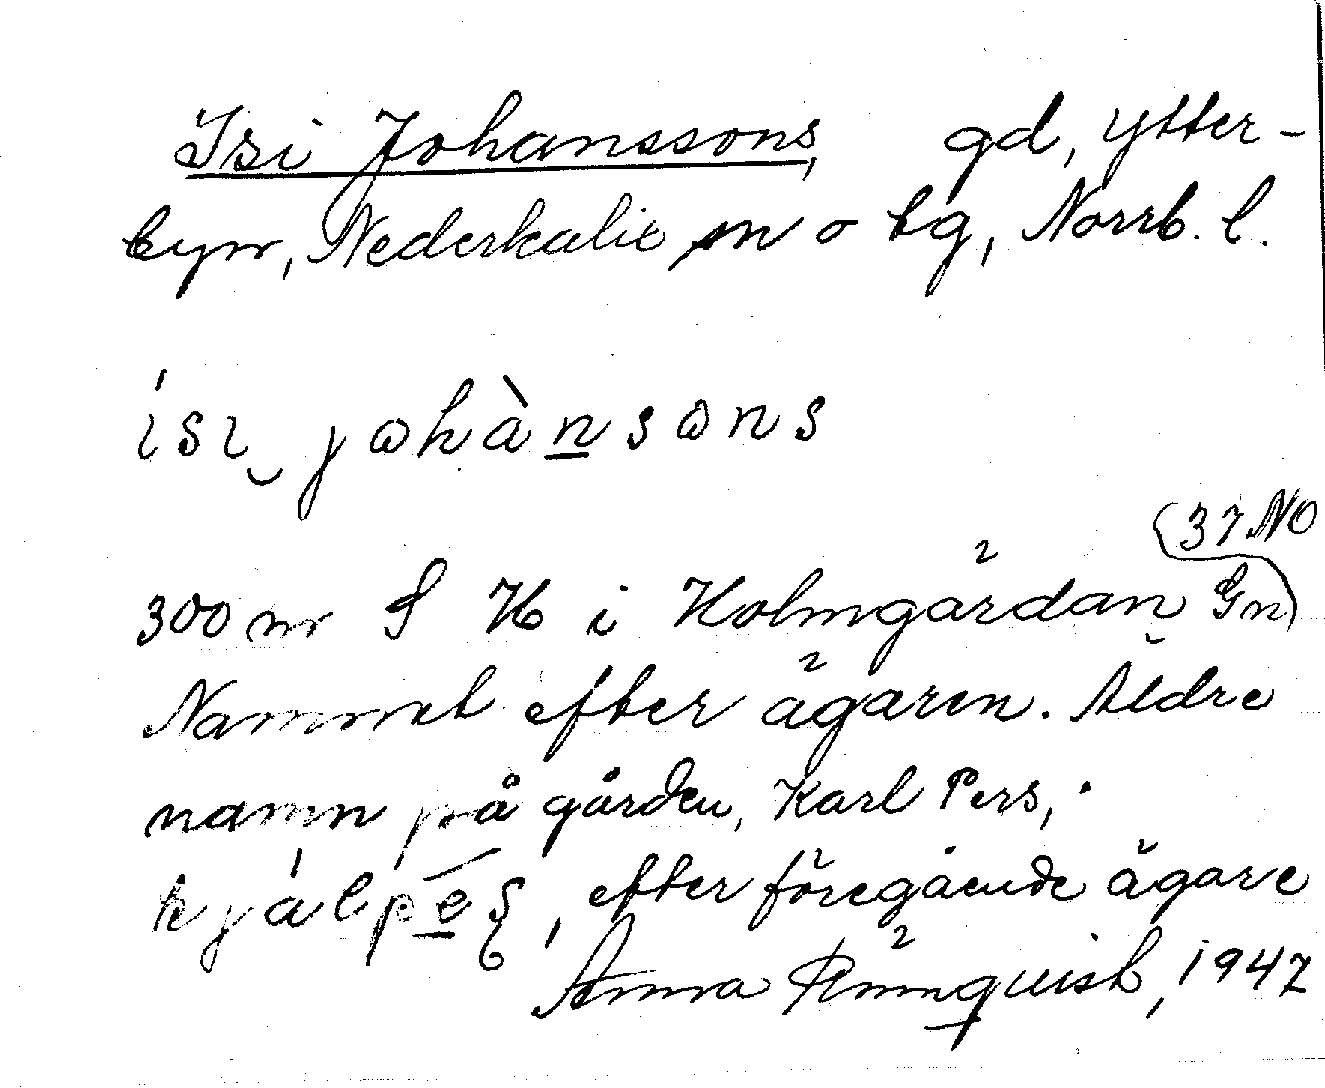 Isi Johanssons, gd, Ytter-
byn, Nederkalix sn o tg, Norrb. l.
ísi‿johànsons
(37 NO
300 m S K i Holmgärdan Gn)
Namnet efter ägaren. Äldre
namn på gården, Karl Pers,
efter föregående ägare
Anna Rönnquist, 1947